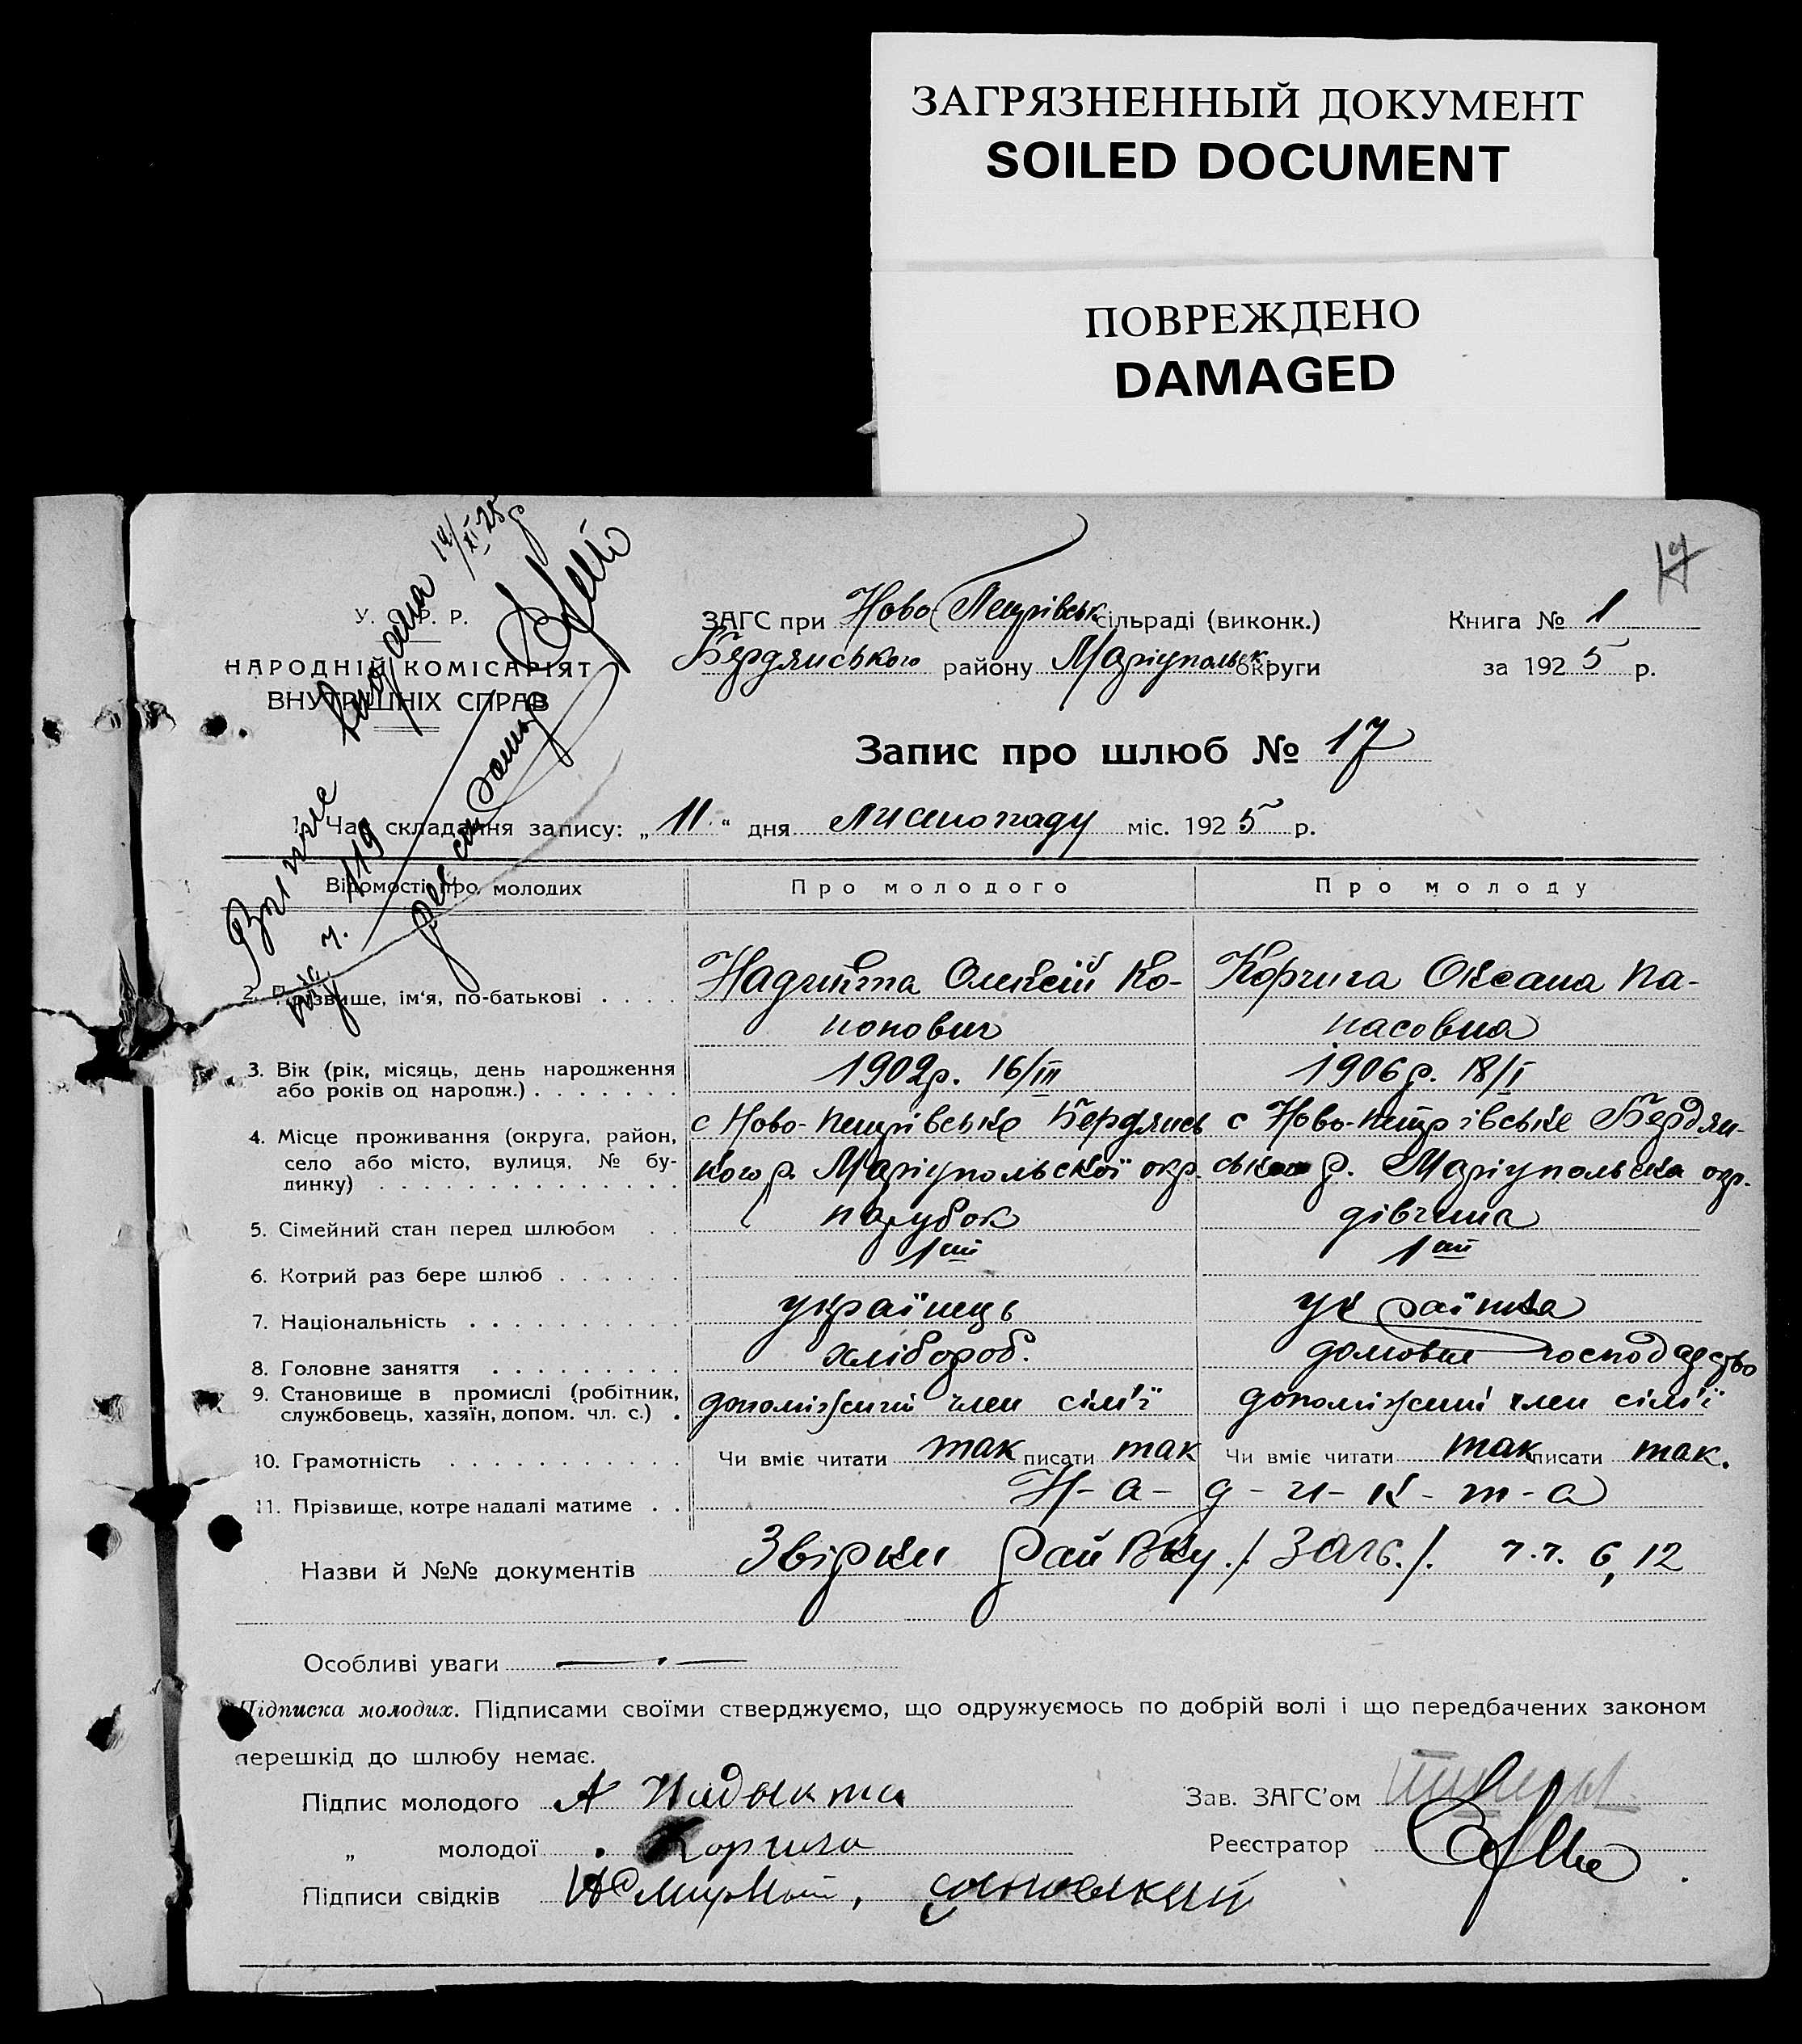 ЗАГРЯЗНЕННЫЙ ДОКУМЕНТ
SOILED DOCUMENT
ПОВРЕЖДЕНО
DAMAGED
17
У. С. Р. Р.
НАРОДНІЙ КОМІСАРІЯТ
ВНУТРІШНІХ СПРАВ
ЗАГС при Ново Петрівськ сільраді (виконк.)
Бердянського району Маріупольск. округи
Книга № 1
за 1925 р.
Запис про шлюб № 17
1. Час складання запису: „11“ дня листопаду міс. 1925 р.
Відомості про молодих
Про молодого
Про молоду
2. Прізвище, ім‘я, по-батькові
Надикта Олексій Ко-
нонович
Корчига Оксана Па-
насовна
3. Вік (рік, місяць, день народження
або років од народж.)
1902р. 16/III
1906р. 18/I
4. Місце проживання (округа, район,
село або місто, вулиця, № бу-
динку)
с Ново-Петрівське Бердянсь
кого р. Маріупольскої окр.
с Ново-Петрівське Бердян-
ського р. Маріупольска окр.
5. Сімейний стан перед шлюбом
парубок
дівчина
6. Котрий раз бере шлюб
1ий
1ий
7. Національність
українець
українка
8. Головне заняття
хлібороб.
домовне господарство
9. Становище в промислі (робітник,
службовець, хазяїн, допом. чл. с.)
допоміжний член сім'ї
допоміжний член сім'ї
10. Грамотність
Чи вміє читати так писати так
Чи вміє читати так писати так.
11. Прізвище, котре надалі матиме
Н-а-д-и-к-т-а
Назви й №№ документів Звірки РайВку./. Загс./. ч.ч. 6, 12
Особливі уваги
Підписка молодих. Підписами своїми стверджуємо, що одружуємось по добрій волі і що передбачених законом
перешкід до шлюбу немає.
Підпис молодого А Надыкта
„ молодої Корчига
Підписи свідків
Зав. ЗАГС’ом
Реєстратор